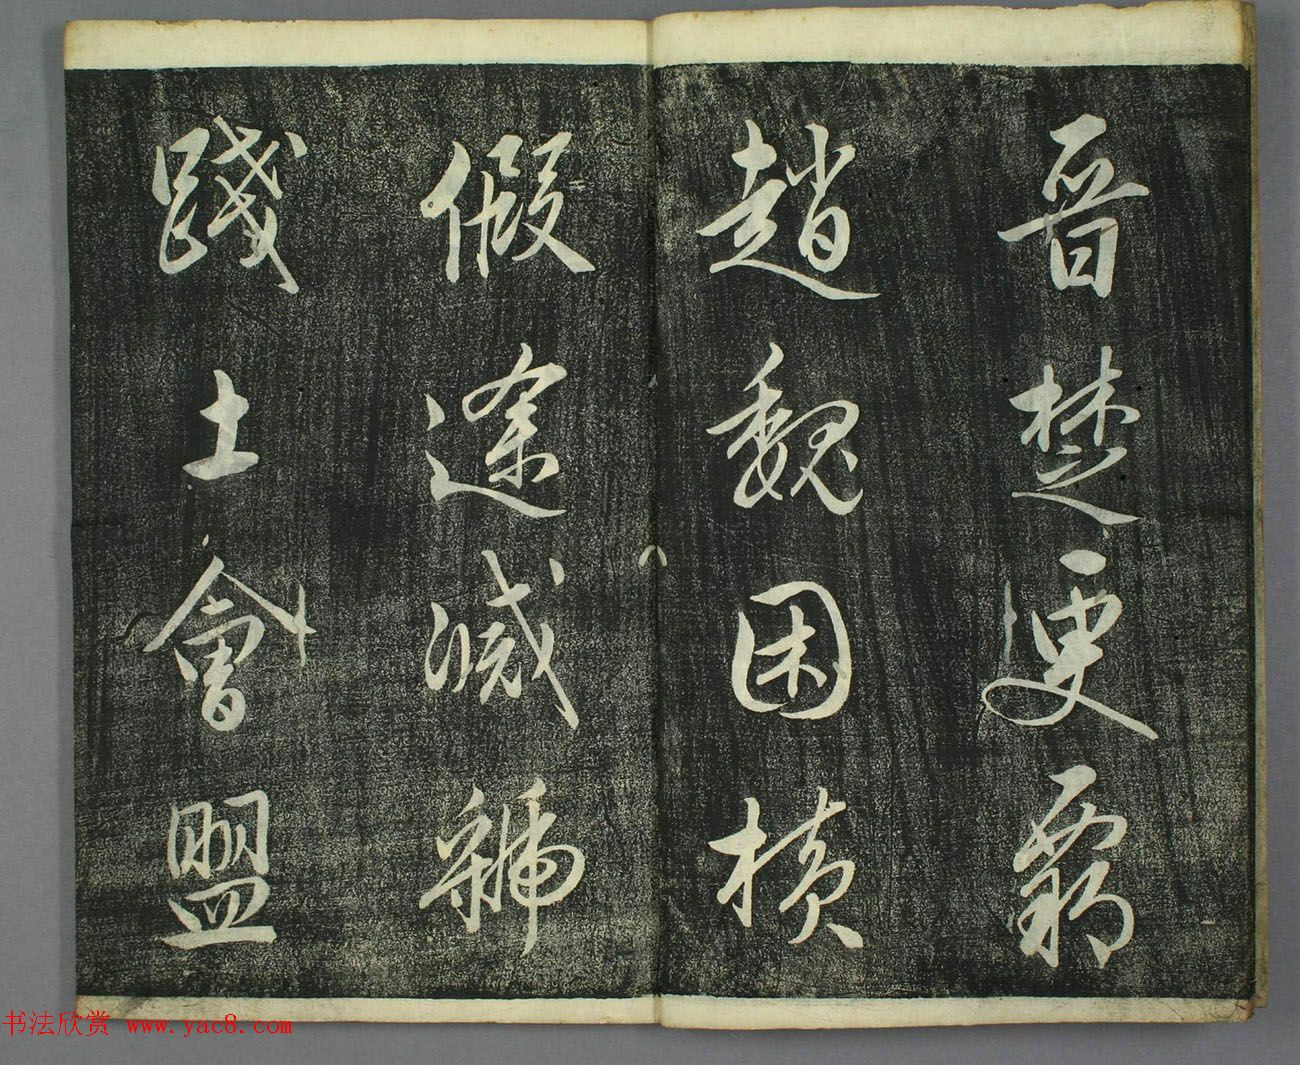 晉楚更霸
趙魏困横
假途滅虢
踐土會盟
书法欣赏 www.yac8.com